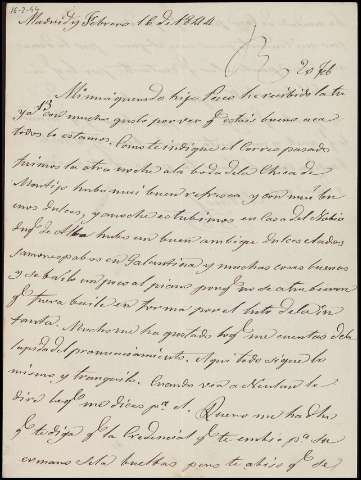 16-2-44
Madrid y Febrero 16 de 1844
20 feb
Mi muy querido hijo Pepe he recibido la tu
ya 13 con mucho gusto por ver q.e estais buenos aca
todos lo estamos. Como te indique el Correo pasado
fuimos la otra noche a la boda de la Chica de
Montijo hubo muy buen refresco y con muy bu
enos dulces, y anoche estubimos en Casa del Nobio
Duq.e de Alba hubo un buen ambigu dulces elados
Jamones pabos en Galantina y muchas cosas buenas
y se bailo un poco al piano porq.e no se atrebieron
q.e fuera baile en forma por el luto de la In
fanta. Mucho me ha gustado lo q.e me cuentas de la
rapidez del pronunciamiento. Aqui todo sigue lo
mismo y tranquilo. Cuando vea a le
dire lo q.e me dices p.a el. me ha dho
q.e te diga q.e la Credencial q.e te embio p.a su
ermano se la buelbas pero te abiso q.e se